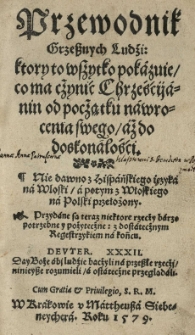 Przewodnik
Grzeßnych Ludźi:
ktory to wßytko pokázuie/
co ma cżynić Chrześcijá-
nin od pocżątku náwro-
cenia swego/ áż do
doskonáłośći.
¶ Nie dawno z Hißpáńskiego ięzyká
ná Włoski/ á potym z Włoskiego
ná Polski przełożony.
Przydáne są teraz niektore rzecży bárzo
potrzebne y pożytecżne: z dostátecżnym
Regestrzykiem ná końcu.
DEVTER. XXXII.
Day Boże áby ludzie bácżyli ná przeßłe rzecży/
ninieyße rozumieli/ á ostátecżne przeglądáli.
Cum Gratia & Priuilegio, S. R. M.
W Krakowie v Mattheußá Siebe-
neycherá. Roku 1579.